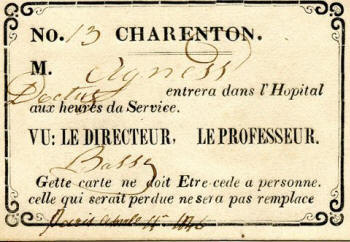 No. 13 CHARENTON.
M. Agness
Docteur entrera dans l'Hopital
aux heures da Service.
VU: LE DIRECTEUR, LE PROFESSEUR.
Bassy
Gette carte ne doit Etre cede a personne.
celle qui serait perdue ne sera pas remplace
Paris